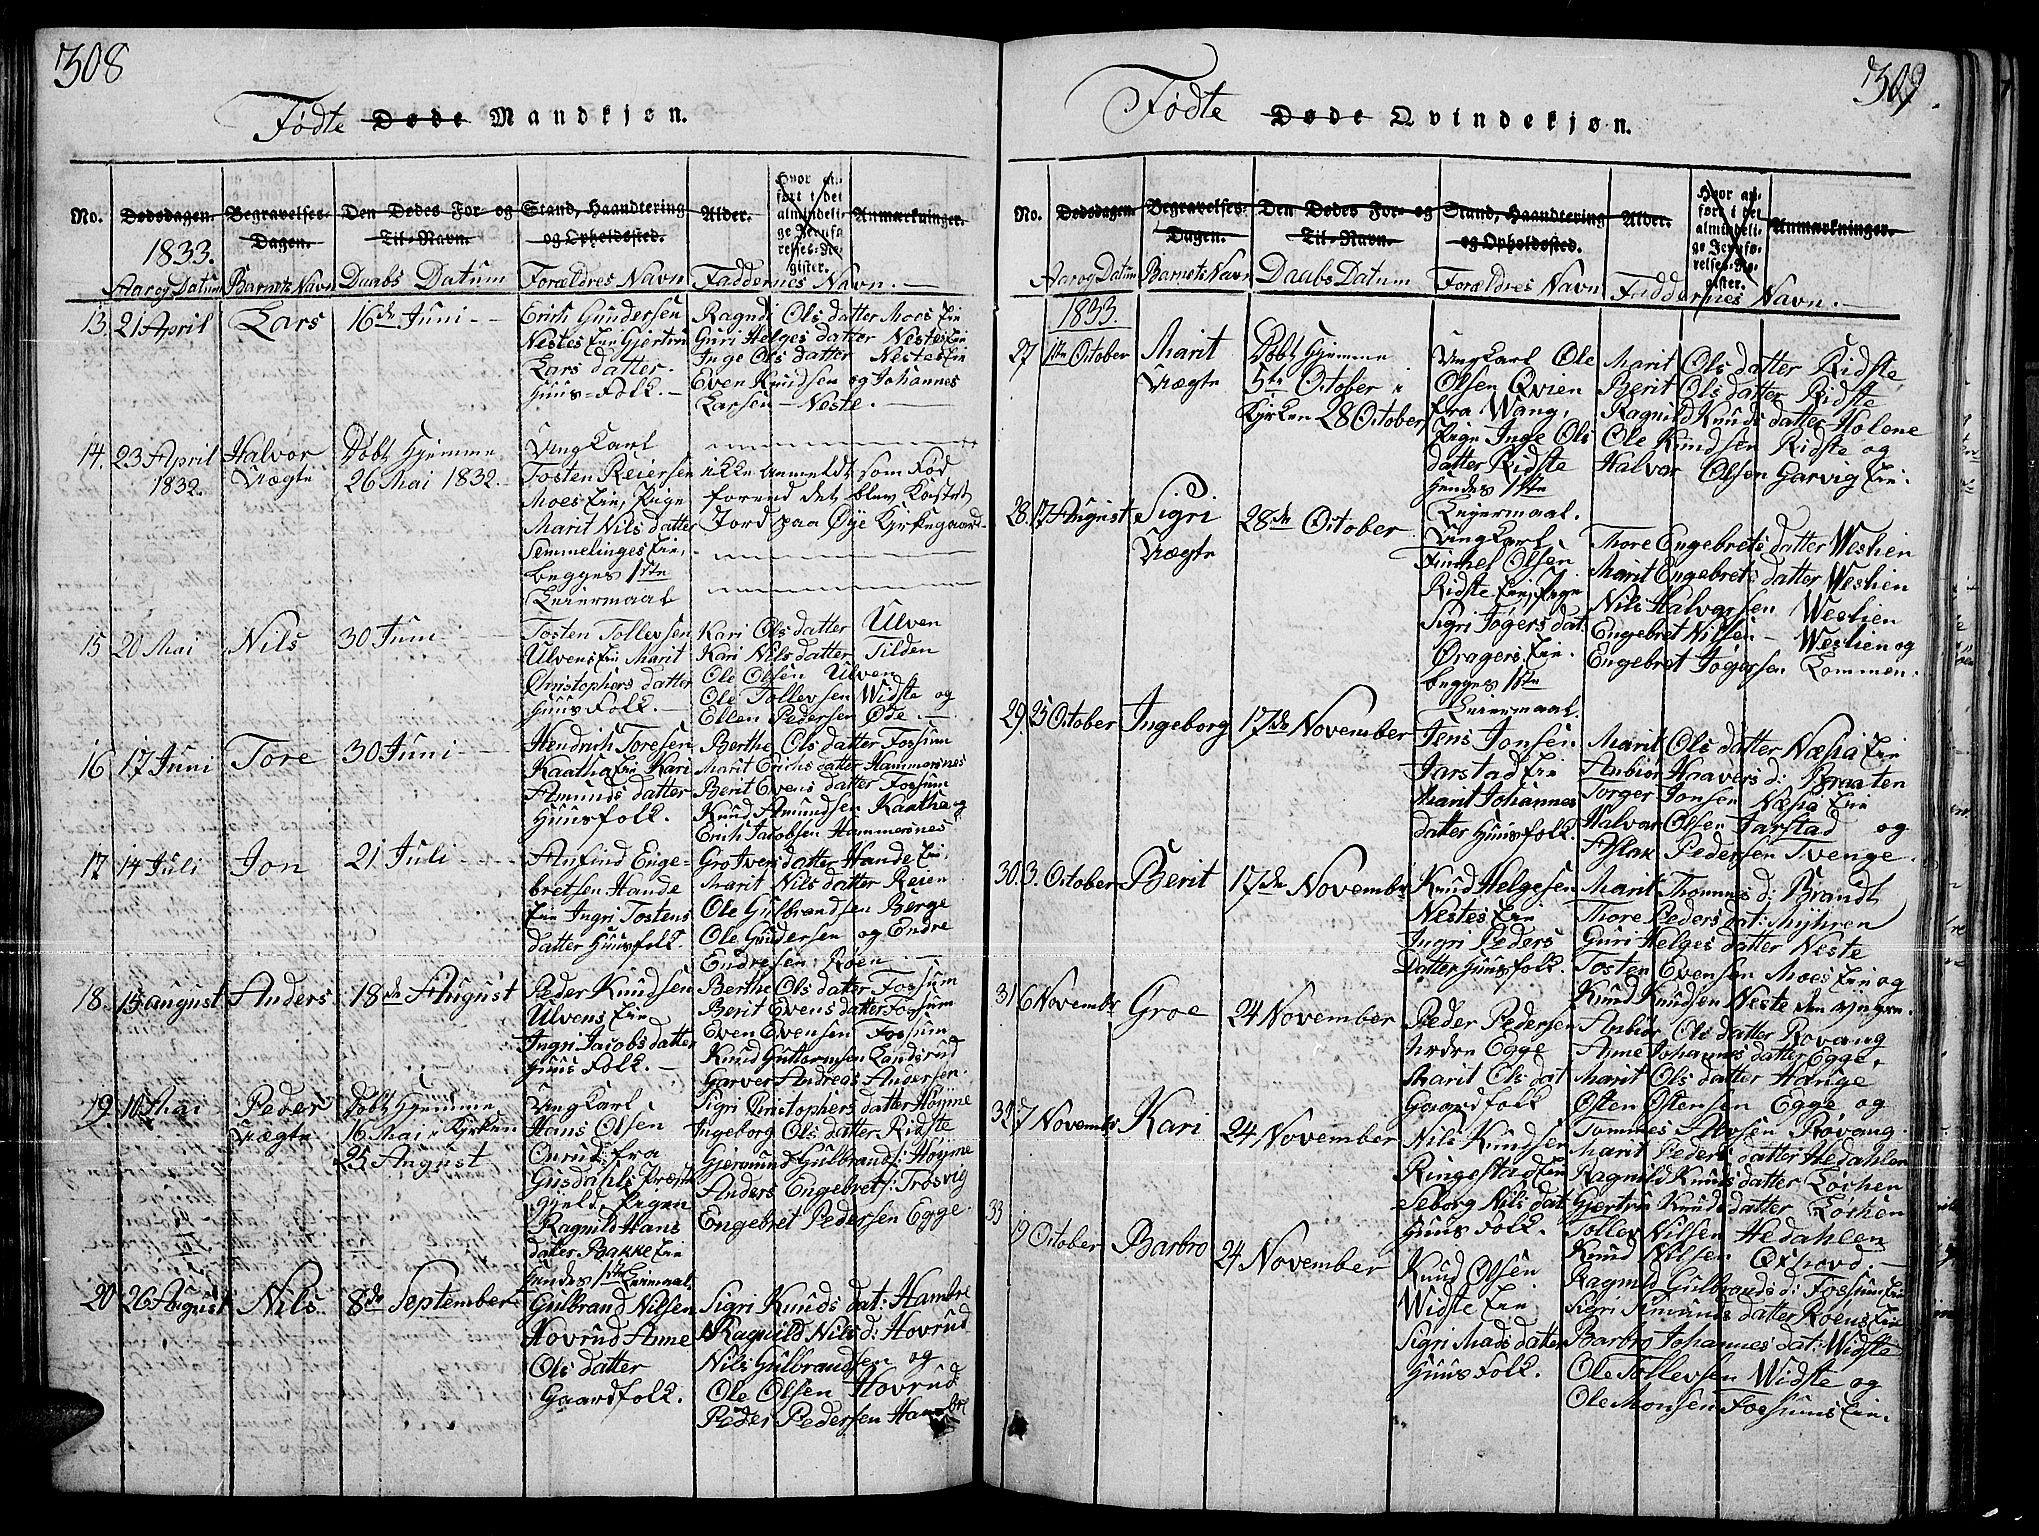 308
Fødte Døde Mandkjøn.
No.
Dødsdagen.
1833.
Aar og Datum
Begravelses-
Dagen.
Barnets Navn
Den Dødes For- og
Til-Navn.
Daabs Datum
Stand, Haandtering
og Opholdssted.
Forældres Navn
Alder.
Hvor an-
ført i det
almindeli-
ge Jevnfø-
relses-Re-
gister.
Anmærkninger.
Faddernes Navn.
13. 21 April
Lars
16de Juni
Erich Gundersen
Nestes Eie Gjertru
Lars datter
Huus-Folk.
Ragndi Ols datter Moes Eie
Guri Helges datter Nestes Eie
Inge Ols datter Nestes Eie
Even Knudsen og Johannes
Larsen - Neste.
14. 23 April
1832.
Halvor
Uægte
Døbt Hjemme
26 Mai 1832.
Ungkarl
Tosten Reiersen
Moes Eie, Pige
Marit Nils datter
Semmelinges Eie,
begges 1ste
Leiermaal
ikke anmeldt som Fød
forend det blev Kastet
Jord paa Øye Kirkegaard.
15 20 Mai
Nils
30 Juni
Tosten Tollevsen
Ulvens Eie Marit
Christophers datter
Huus Folk.
Kari Ols datter Ulven
Kari Nils datter Tilden
Ole Olsen Ulven
Ole Tollevsen Widste og
Ellen Pedersen Øde.
16 17 Juni
Tore
30 Juni
Hendrich Toresen
Kaatha Eie Kari
Amunds datter
Huusfolk.
Berthe Ols datter Fossum
Marit Erichs datter Hammersnes
Berit Evens datter Fossum
Knud Amundsen Kaatha og
Erich Jacobsen Hammersnes
17 14 Juli
Jon
21 Juli
Anfind Enge-
bretsen Hande
Eie Ingri Tostens
datter Huusfolk.
Gro Ivers datter Hande Eie,
Marit Nils datter Reien
Ole Gulbrandsen Berge
Ole Gundersen og Endre
Endresen Røen.
18. 15 august
Anders
18de August
Peder Knudsen
Ulvens Eie
Ingri Jacobs datter
Huus Folk.
Berthe Ols datter Fossum
Berit Evens datter Fossum
Even Evensen Fossum
Knud Guttormsen Landsrud
Garver Andreas Andersen.
19. 10 Mai
Peder
Uægte
Døbt Hjemme
16 Mai i Kirken
25 August
Ungkarl
Hans Olsen
fra
Gusdahls Præste
Gjeld. Pigen
Ragnild Hans
datter Bakke Eie
Hendes 1ste Leiermaal
Sigri Christophers datter Høyne
Ingeborg Ols datter Ridste
Gjermund Gulbrands: Høyne
Anders Engebrets: Trøsvig
Engebret Pedersen Egge.
20 26 August
Nils
8de September
Gulbrand Nilsen
Hovrud Anne
Ols datter
Gaardfolk.
Sigri Knuds dat: Hambre
Ragnild Nils d: Hovrud
Nils Gulbrandsen og
Ole Olsen Hovrud
Peder Pedersen Hambre
309.
Fødte Døde Qvindekjøn.
No.
Dødsdagen.
Aar og Datum
1833.
Begravelses-
Dagen.
Barnets Navn
Den Dødes For- og
Til-Navn.
Daabs Datum
Stand, Haandtering
og Opholdssted.
Forældres Navn
Alder.
Hvor an-
ført i det
almindeli-
ge Jevnfø-
relses-Re-
gister.
Anmærkninger.
Faddernes Navn.
27 1ste October
Marit
Uægte
Døbt Hjemme
5te October i
Kirken 28 October
Ungkarl Ole
Olsen Qvien
fra Wang,
Pige Inge Ols
datter Ridste
Hendes 1ste
Leiermaal.
Marit Ols datter Ridste,
Berit Ols datter Ridste
Ragnild Knuds datter Holene
Ole Knudsen Ridste og
Halvor Olsen Garvig Eie.
28. 17 August
Sigri
Uægte
28de October
Ungkarl
Fimhel Olsen
Ridste Eie, Pige
Sigri Jøgers dat
Dragers Eie.
begges 1ste
Leiermaal.
Thore Engebrets datter Westien
Marit Engebrets datter Westien
Nils Halvorsen Westien
Engebret Nilsen - Westien og
Engebret Jøgersen Lommen.
29. 23 October
Ingeborg
17de November
Jens Jonsen
Jarstad Eie
Marit Johannes
datter Huusfolk.
Marit Ols datter Næsha Eie
Anbiør Haavers d: Braaten
Torger Jonsen Næsha Eie
Halvor Olsen Jarstad og
Aslak Pedersen Tvenge.
30. 3. October
Berit
17de November
Knud Helgesen
Nestes Eie
Ingri Peders
Datter Huusfolk.
Marit Thommes d: Brandt
Thore Peders dat: Myhren
Guri Helges datter Neste
Tosten Evensen Moes Eie og
Knud Knudsen Neste den yngre.
31 6 November
Groe
24 November
Peder Pedersen
nedre Egge
Marit Ols dat
Gaardfolk
Anbiør Ols datter Rovang
Anne Johannes datter Egge,
Marit Ols datter Hauge
Østen Østensen Egge og
Tommes Iversen Røvang.
32 7 November
Kari
24 November
Nils Knudsen
Ringestad Eie
Seborg Nils dat
Huus Folk.
Marit Peders datter Hedahlen
Ragnild Knuds datter Løken
Gjertru Knuds datter Løken
Tollev Nilsen Hedahlen
Knud Nilsen Oxhovd.
33 19 October
Barbro
24 November
Knud Olsen
Widste Eie
Sigri Mads datter
Huus Folk.
Ragnild Gulbrands d: Fossum Eie
Sigri Amunds datter Røens Eie
Barbro Johannes dat: Widste
Ole Tollevsen Widste og
Ole Monsen Fossums Eie.